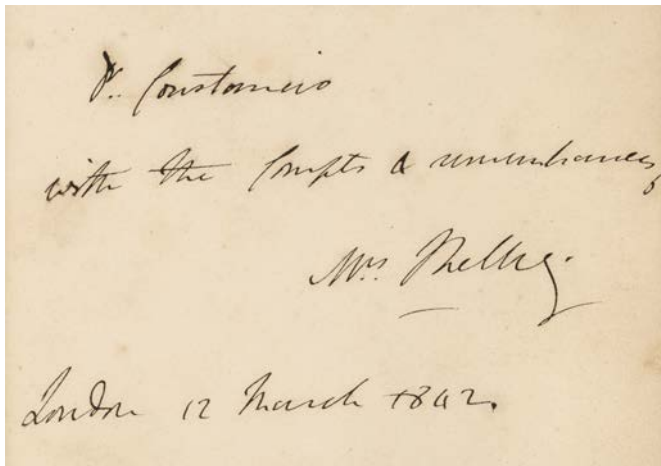 Dr. Constancio
with the Compts & remembrances
Mrs. Shelley.
London 12 March 1842.